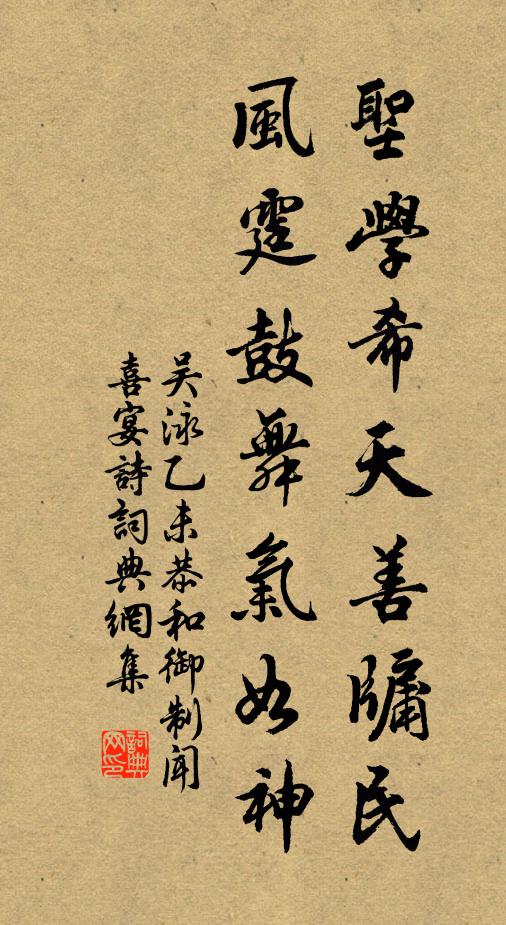 聖學希天善牖民
風霆鼓舞氣如神
吳泳乙未恭和御制聞
喜宴詩詞典網集
詞典網印